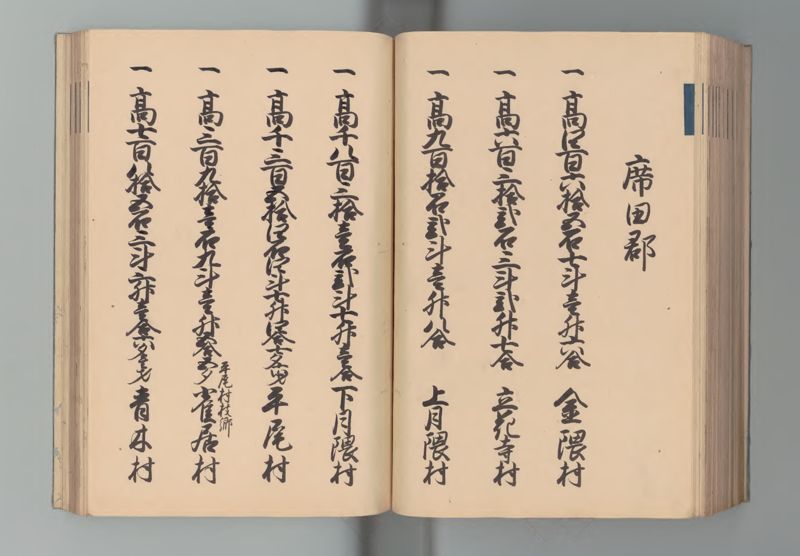 席田郡
一 高四百六拾五石七斗壱升六合 金隈村
一 高六百三拾弐石三斗弐升七合 立花寺村
一 高九百拾石弐斗壱升八合 上月隈村
一 高千八百三拾壱石弐斗七升壱合 下月隈村
一 高千三百五拾四石四斗七升四合 平尾村
平尾村枝郷
一 高三百九拾壱石九斗壱升五合五夕 雀居村
一 高七百八拾五石三斗六升壱合六夕 青木村